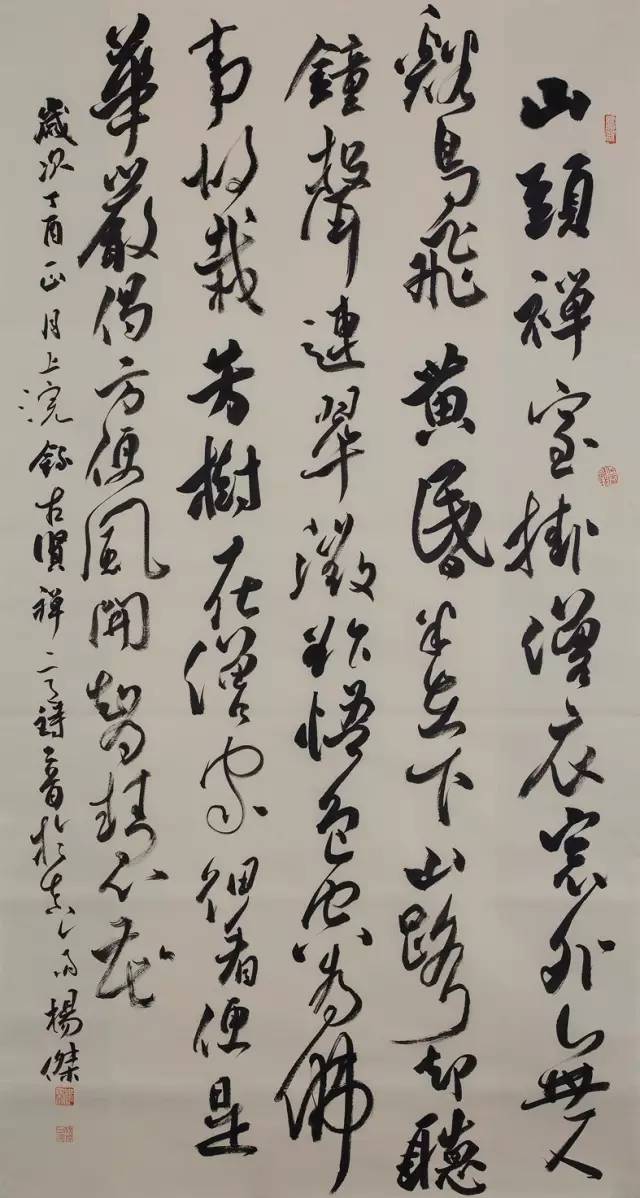 山頭禪室掛僧衣窓外無人
谿鳥飛黃昏半在下山路却聽
鐘聲連翠微欲悟色空為佛
事故栽芳樹在僧家細看便是
華嚴偈方便風開智慧花
歲次丁酉正月上浣錄古賢禪詩二首於楊傑